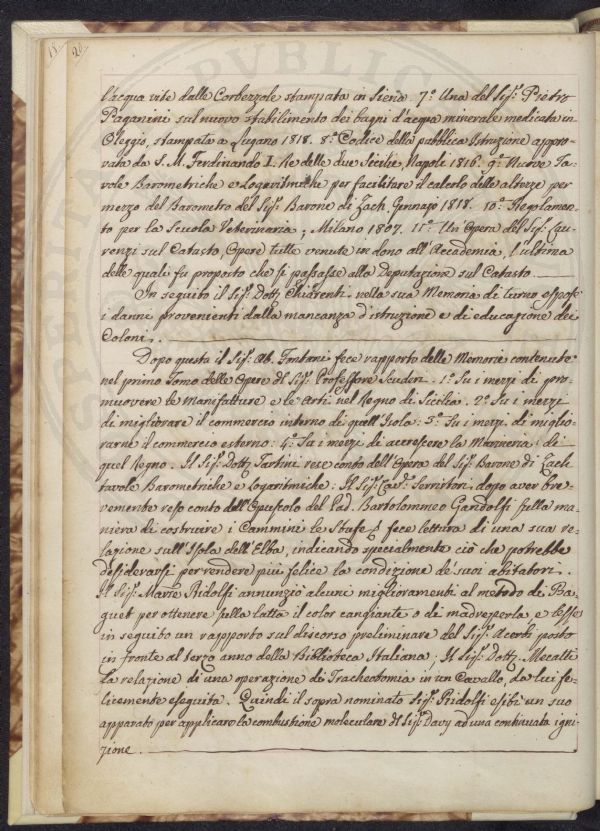 20.
l'acqua vite dalle Corbezzole stampata in Siena 7.° Una del Sig.r Pietro
Paganini sul nuovo stabilimento dei bagni d'acqua minerale medicata in
Oleggio, stampata a Lugano 1818. 8.° Codice della pubblica Istruzione appro-
vata da S. M. Ferdinando I. Re delle due Sicilie, Napoli 1816. 9.° Nuove Ta-
vole Barometriche e Logaritmiche per facilitare il calcolo delle altezze per
mezzo del Barometro del Sig.r Barone di Zach. Gennajo 1818. 10.° Regolamen-
to per la Scuola Veterinaria, Milano 1807. 11.° Un' Opera del Sig.r Lau-
renzi sul Catasto, Opere tutte venute in dono all'Accademia, l'ultima
delle quali fu proposto che si passasse alla Deputazione sul Catasto.
In seguito il Sig.r Dott. Chiarenti nella sua Memoria di turno espose
i danni provenienti dalla mancanza d'istruzione e di educazione dei
Coloni.
Dopo questa il Sig.r Ab. Fontani fece rapporto delle Memorie contenute
nel primo Tomo delle Opere dl Sig.r Professore Scuderi. 1.° Su i mezzi di pro-
muovere le Manifatture e le Arti nel Regno di Sicilia. 2.° Su i mezzi
di migliorare il commercio interno di quell'Isola: 3.° Su i mezzi di miglio-
rarne il commercio esterno: 4.° Su i mezzi di accrescere la Marineria di
quel Regno. Il Sig.r Dott. Tartini rese conto dell'Opera del Sig.r Barone di Zach
tavole Barometriche e Logaritmiche: Il Sig.r Cav.r Serristori dopo aver bre-
vemente reso conto dell'Opuscolo del Pad. Bartolommeo Gandolfi sulla ma-
niera di costruire i Cammini le Stufe fece lettura di una sua re-
lazione sull'Isola dell'Elba, indicando specialmente ciò che potrebbe
desiderarsi per rendere più felice la condizione de' suoi abitatori.
Il Sig.r March. Ridolfi annunziò alcuni miglioramenti al metodo di Ba-
guet per ottenere sulla latta il color cangiante o di madreperla e lesse
in seguito un rapporto sul discorso preliminare del Sig.r Acerbi posto
in fronte al terzo anno della Biblioteca Italiana; Il Sig.r Dott. Mecatti
la relazione di una operazione di Tracheotomia in un Cavallo, da lui fe-
licemente eseguita. Quindi il sopra nominato Sig.r Ridolfi esibì un suo
apparato per applicare la combustione moleculare dl Sig.r Davy ad una continuata igni-
zione.